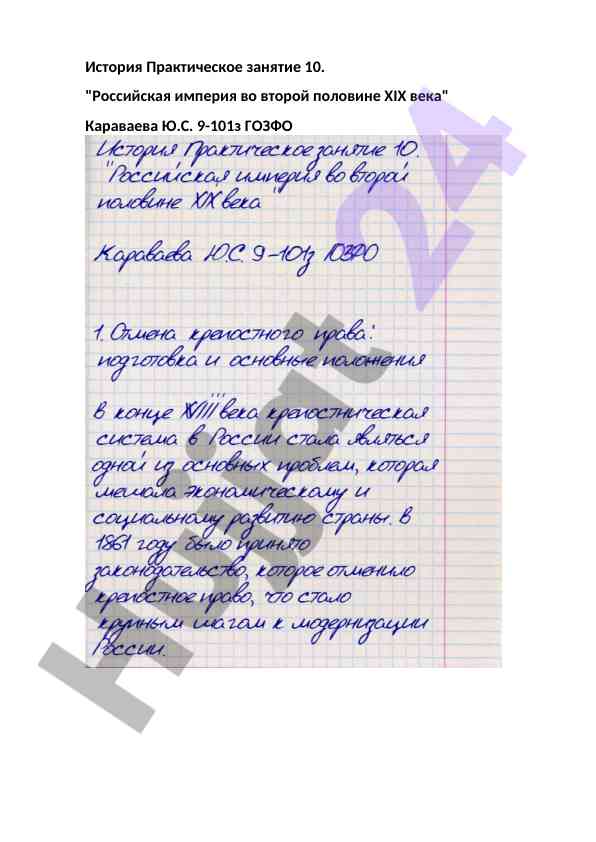 История Практическое занятие 10.
"Российская империя во второй половине XIX века"
Караваева Ю.С. 9-101з ГОЗФО
История Практическое занятие 10.
"Российская империя во второй
половине XIX века"
Караваева Ю.С. 9-101з ГОЗФО
1. Отмена крепостного права:
подготовка и основные положения
В конце XVIII века крепостническая
система в России стала являться
одной из основных проблем, которая
мешала экономическому и
социальному развитию страны. В
1861 году было принято
законодательство, которое отменило
крепостное право, что стало
крупным шагом к модернизации
России.
Hujjat 24